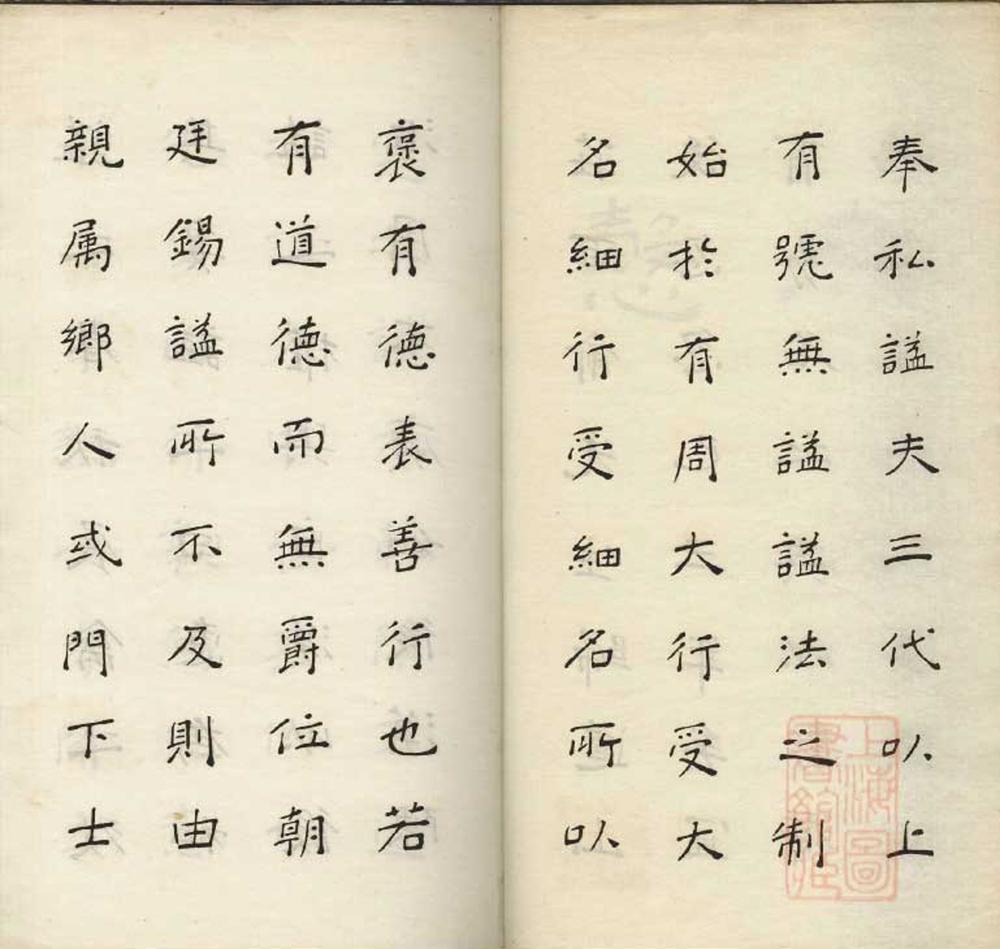 奉私謚夫三代以上
有號無謚謚法之制
始於有周大行受大
名細行受細名所以
褒有德表善行也若
有道德而無爵位朝
廷錫謚所不及則由
親属鄉人或門下士
上海圖書館藏